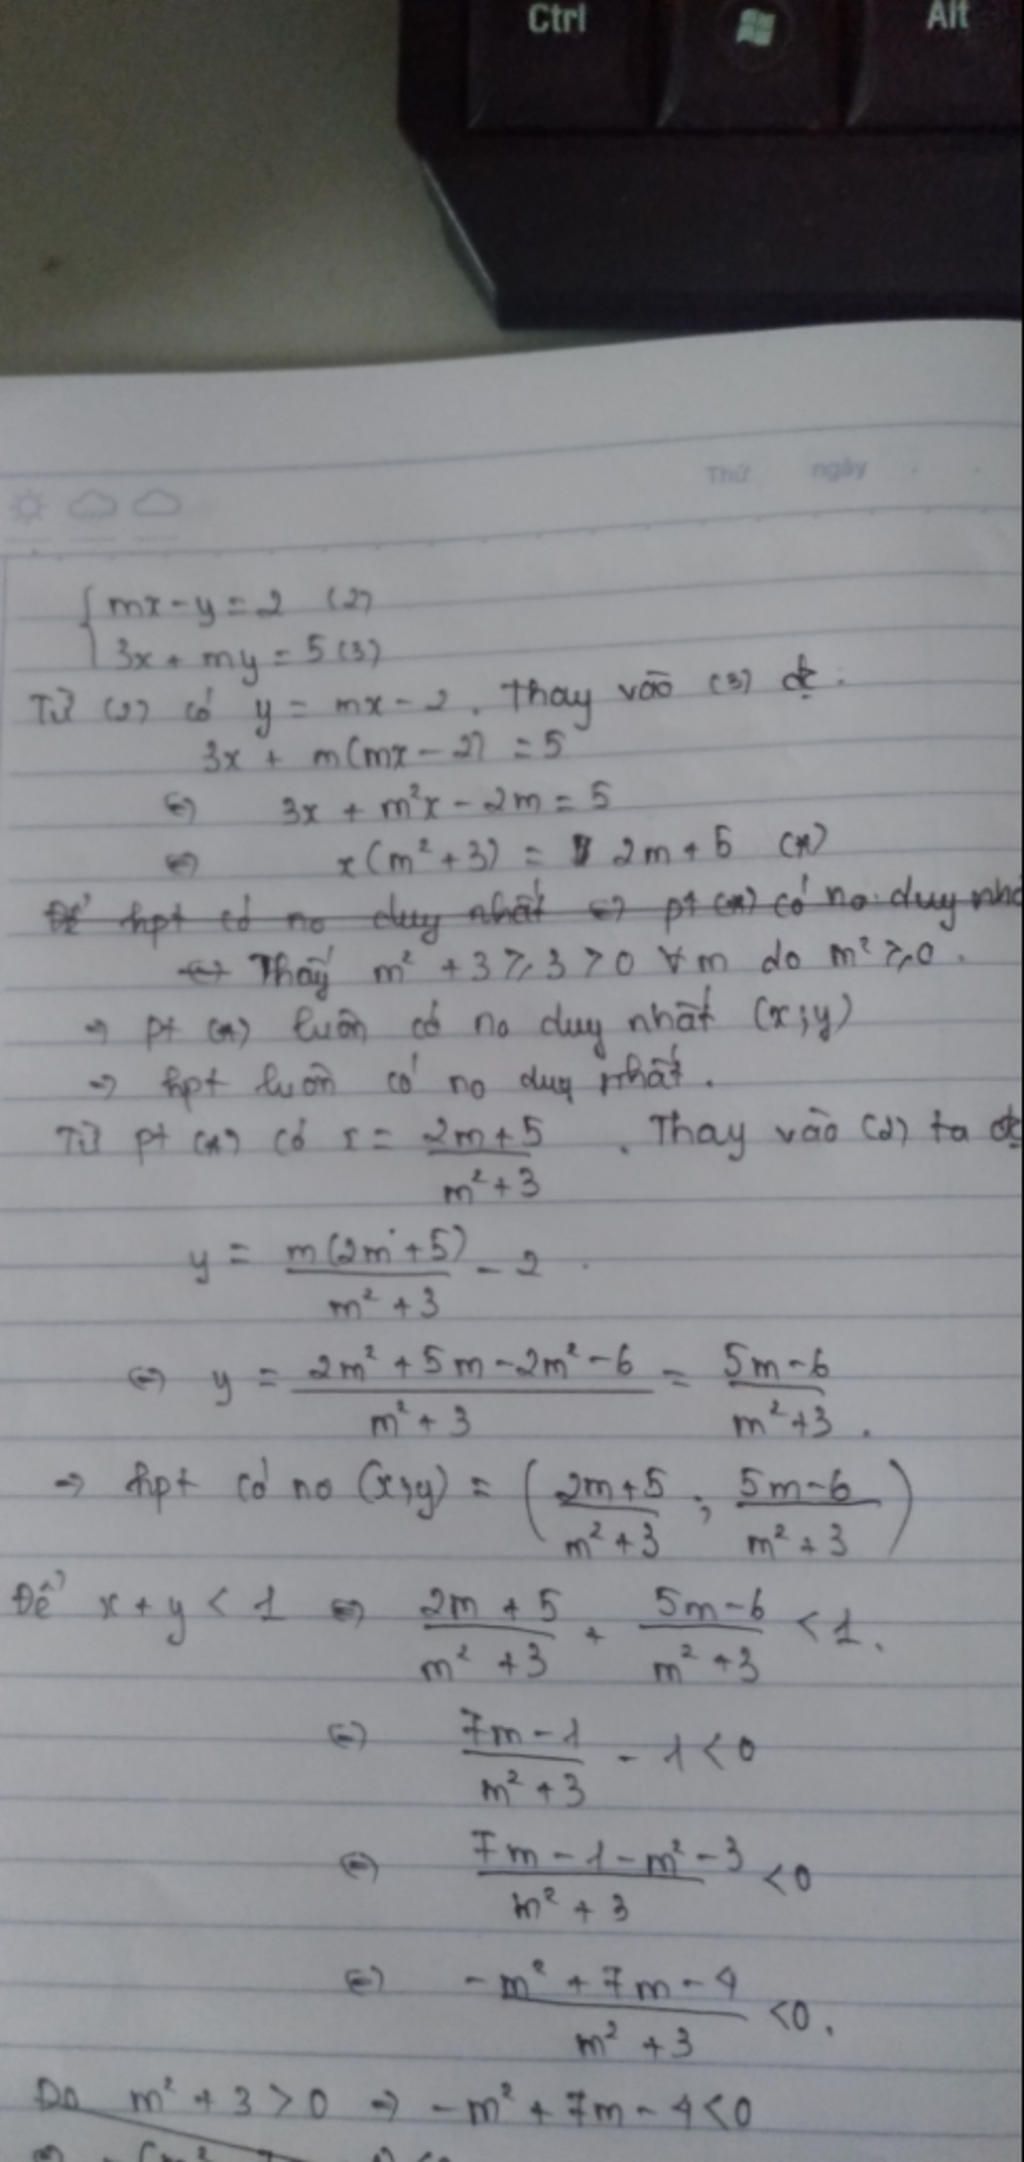 Ctrl Alt
Thứ ngày
{ mx - y = 2 (2)
3x + my = 5 (3)
Từ (2) có y = mx - 2. Thay vào (3) đc:
3x + m(mx - 2) = 5
⇔ 3x + m²x - 2m = 5
⇔ x(m² + 3) = 2m + 5 (*)
Để hpt có no duy nhất ⇔ pt (*) có no duy nhấ
⇔ Thấy m² + 3 ≥ 3 > 0 ∀m do m² ≥ 0.
⇒ pt (*) luôn có no duy nhất (x;y)
⇒ hpt luôn có no duy nhất.
Từ pt (*) có x = (2m+5)/(m²+3). Thay vào (2) ta đc
y = m(2m+5)/(m²+3) - 2.
⇔ y = (2m² + 5m - 2m² - 6)/(m² + 3) = (5m-6)/(m²+3).
⇒ hpt có no (x;y) = ((2m+5)/(m²+3) ; (5m-6)/(m²+3))
Để x + y < 1 ⇔ (2m+5)/(m²+3) + (5m-6)/(m²+3) < 1.
⇔ (7m-1)/(m²+3) - 1 < 0
⇔ (7m - 1 - m² - 3)/(m² + 3) < 0
⇔ (-m² + 7m - 4)/(m² + 3) < 0.
Do m² + 3 > 0 ⇒ -m² + 7m - 4 < 0